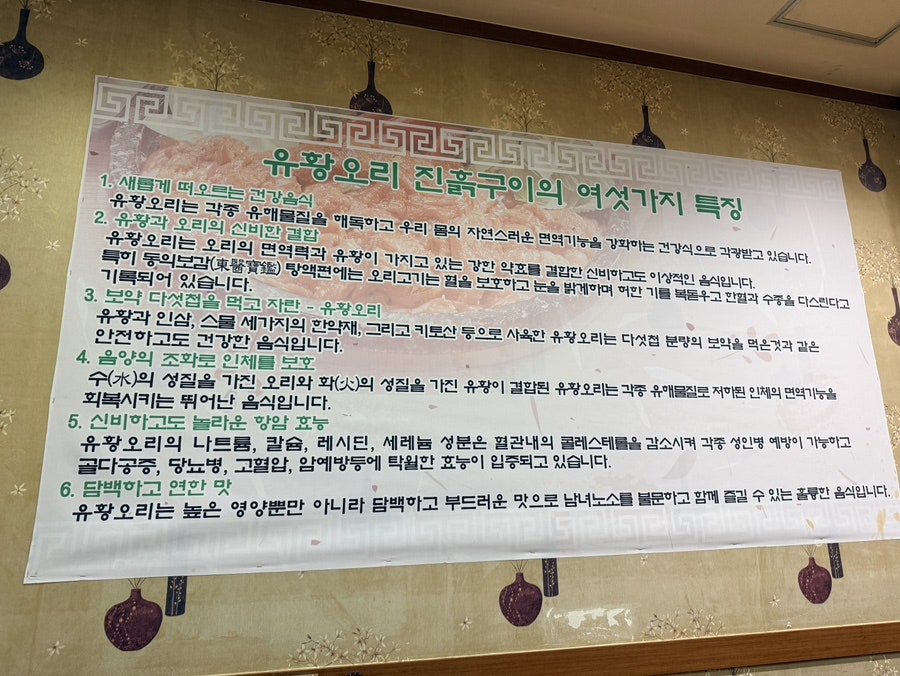 유황오리 진흙구이의 여섯가지 특징
1. 새롭게 떠오르는 건강음식
유황오리는 각종 유해물질을 해독하고 우리 몸의 자연스러운 면역기능을 강화하는 건강식으로 각광받고 있습니다.
2. 유황과 오리의 신비한 결합
유황오리는 오리의 면역력과 유황이 가지고 있는 강한 약효를 결합한 신비하고도 이상적인 음식입니다.
특히 동의보감(東醫寶鑑) 탕액편에는 오리고기는 혈을 보호하고 눈을 밝게하며 허한 기를 복돋우고 한혈과 수종을 다스린다고
기록되어 있습니다.
3. 보약 다섯첩을 먹고 자란 - 유황오리
유황과 인삼, 스물 세가지의 한약재, 그리고 키토산 등으로 사육한 유황오리는 다섯첩 분량의 보약을 먹은것과 같은
안전하고도 건강한 음식입니다.
4. 음양의 조화로 인체를 보호
수(水)의 성질을 가진 오리와 화(火)의 성질을 가진 유황이 결합된 유황오리는 각종 유해물질로 저하된 인체의 면역기능을
회복시키는 뛰어난 음식입니다.
5. 신비하고도 놀라운 항암 효능
유황오리의 나트륨, 칼슘, 레시딘, 세레늄 성분은 혈관내의 콜레스테롤을 감소시켜 각종 성인병 예방이 가능하고
골다공증, 당뇨병, 고혈압, 암예방등에 탁월한 효능이 입증되고 있습니다.
6. 담백하고 연한 맛
유황오리는 높은 영양뿐만 아니라 담백하고 부드러운 맛으로 남녀노소를 불문하고 함께 즐길 수 있는 훌륭한 음식입니다.